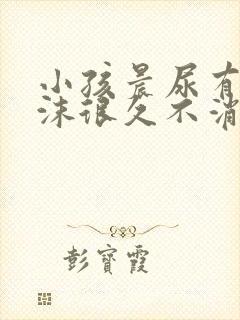 小孩晨尿有
沫很久不消
彭寳霞